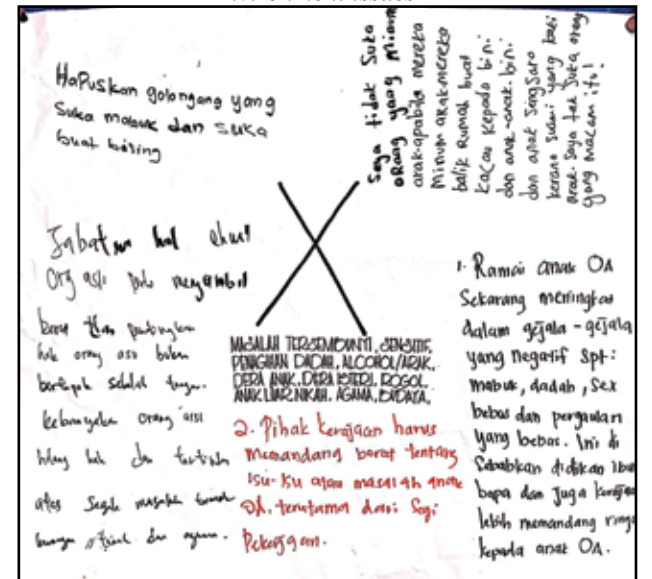 Hapuskan golongang yang
Suka mabuk dan suka
buat bising
Saya tidak Suka
orang yang Minum
arak. apabila mereka
Minum arak mereka
balik Rumah buat
Kacau Kepada bini
dan anak-anak. bini
dan anak Sengsara
kerana suami yang kaki
arak. Saya tak Suka orang
yang macam itu!
Jabatan hal ehwal
Org asli
hak orang asli bukan
orang asli
hilang hak dan
atas Segala masalah
dan agama.
MASALAH TERSEMBUNYI, SENSITIF,
PENAGIHAN DADAH, ALCOHOL/ARAK,
DERA ANAK, DERA ISTERI, ROGOL,
ANAK LUAR NIKAH, AGAMA, BUDAYA,
2. Pihak kerajaan harus
Memandang berat tentang
isu-isu atau masalah anak
OA. terutama dari Segi
Pekerjaan.
1. Ramai anak OA
Sekarang meningkat
dalam gejala-gejala
yang negatif spt:
mabuk, dadah, Sex
bebas dan pergaulan
yang bebas. Ini di
Sebabkan didikan Ibu
bapa dan Juga kerajaan
lebih memandang ringan
kepada anak OA.